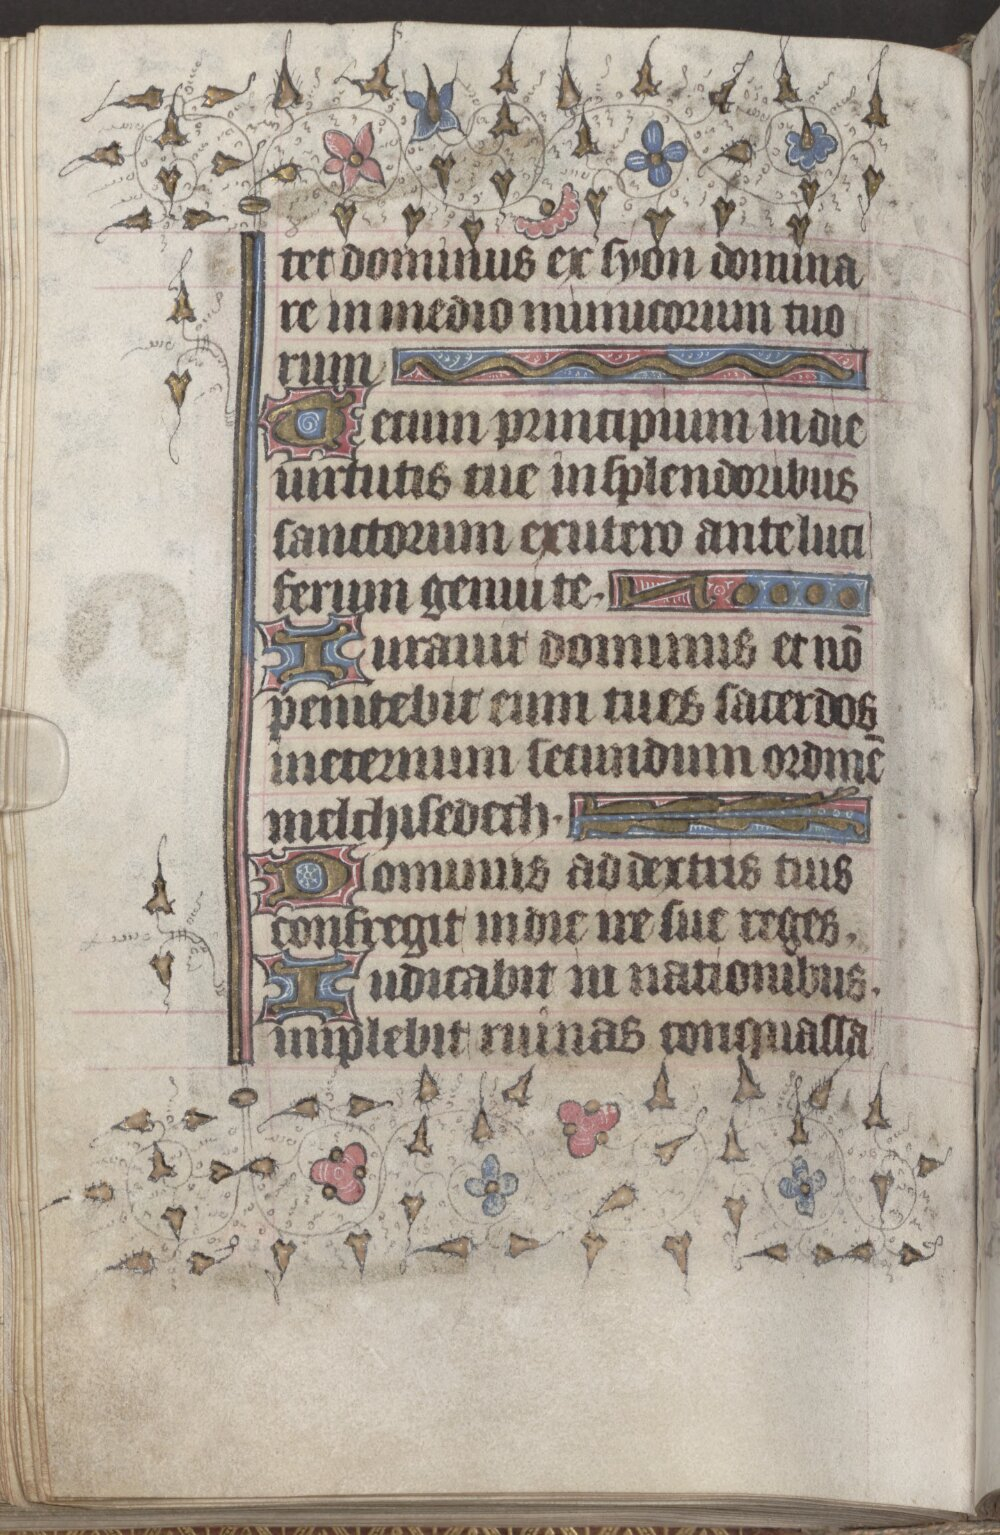 tet dominus ex syon domina
re in medio inimicorum tuo
rum
Tecum principium in die
uirtutis tue in splendoribus
sanctorum ex utero ante luci
ferum genui te.
Iurauit dominus et nō
penitebit eum tu es sacerdos
in eternum secundum ordinē
melchisedech.
Dominus a dextris tuis
confregit in die ire sue reges.
Iudicabit in nationibus.
implebit ruinas conquassa